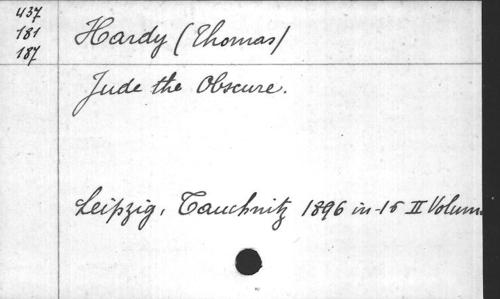 437
181
187
Hardy (Thomas)
Jude the Obscure.
Leipzig, Tauchnitz 1896 in-16 II Volum